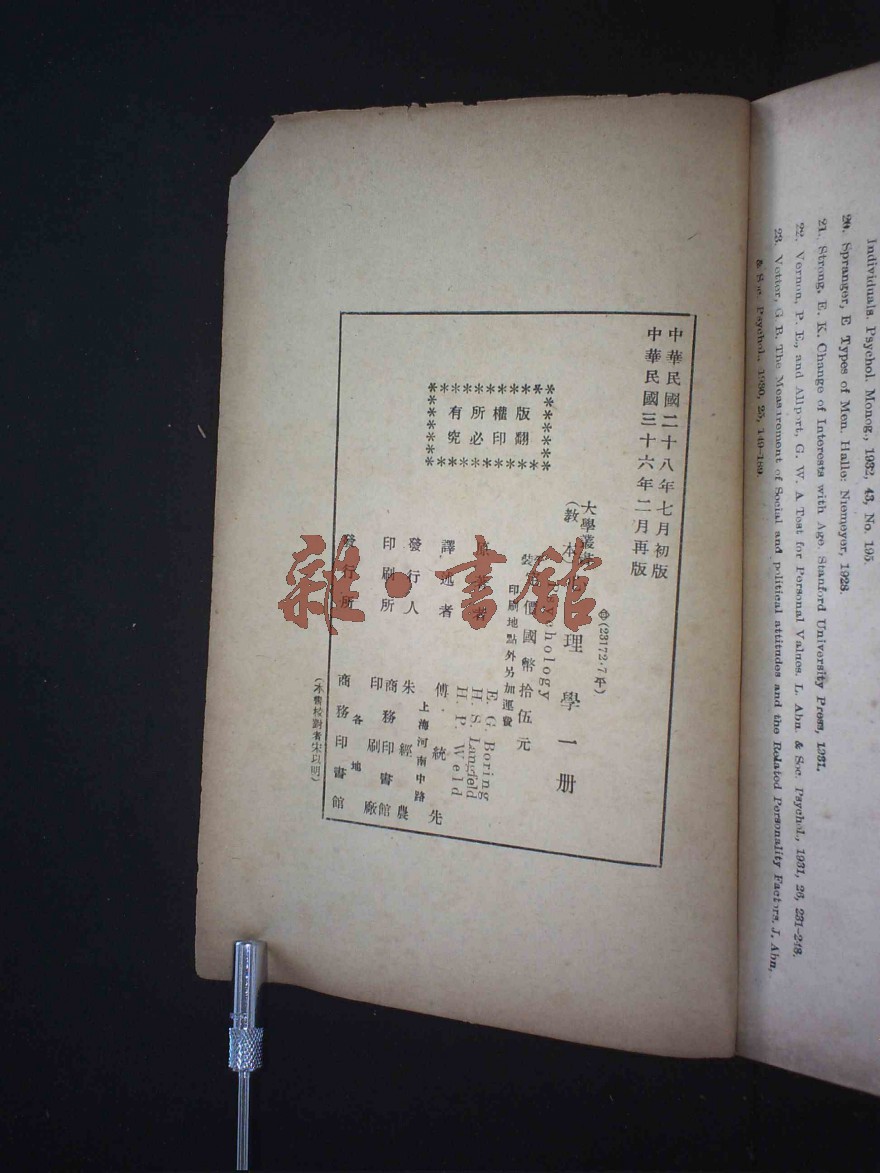 中華民國二十八年七月初版
中華民國三十六年二月再版
版權所有
翻印必究
(23172·7平)
大學叢書
(教本)
理學一册
Psychology
價國幣拾伍元
印刷地點外另加運費
原著者
E. G. Boring
H. S. Langfeld
H. P. Weld
譯述者 傅統先
上海河南中路
發行人 朱經農
印刷所 商務印書館
印刷廠
各地
發行所 商務印書館
(本書校對者宋以明)
雜·書館
Individuals. Psychol. Monog., 1932, 43, No. 195.
20. Spranger, E. Types of Men. Halle: Niemeyer, 1928.
21. Strong, E. K. Change of Interests with Age. Stanford University Press, 1931.
22. Vernon, P. E., and Allport, G. W. A Test for Personal Values. L. Abn. & Soc. Psychol., 1931, 26, 231-248.
23. Vetter, G. B. The Measurement of Social and political attitudes and the Related Personality Factors. J. Abn,
& Soc. Psychol., 1930, 25, 149-189.